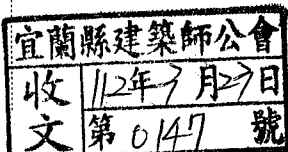 宜蘭縣建築師公會
收文
112年3月23日
第0147號